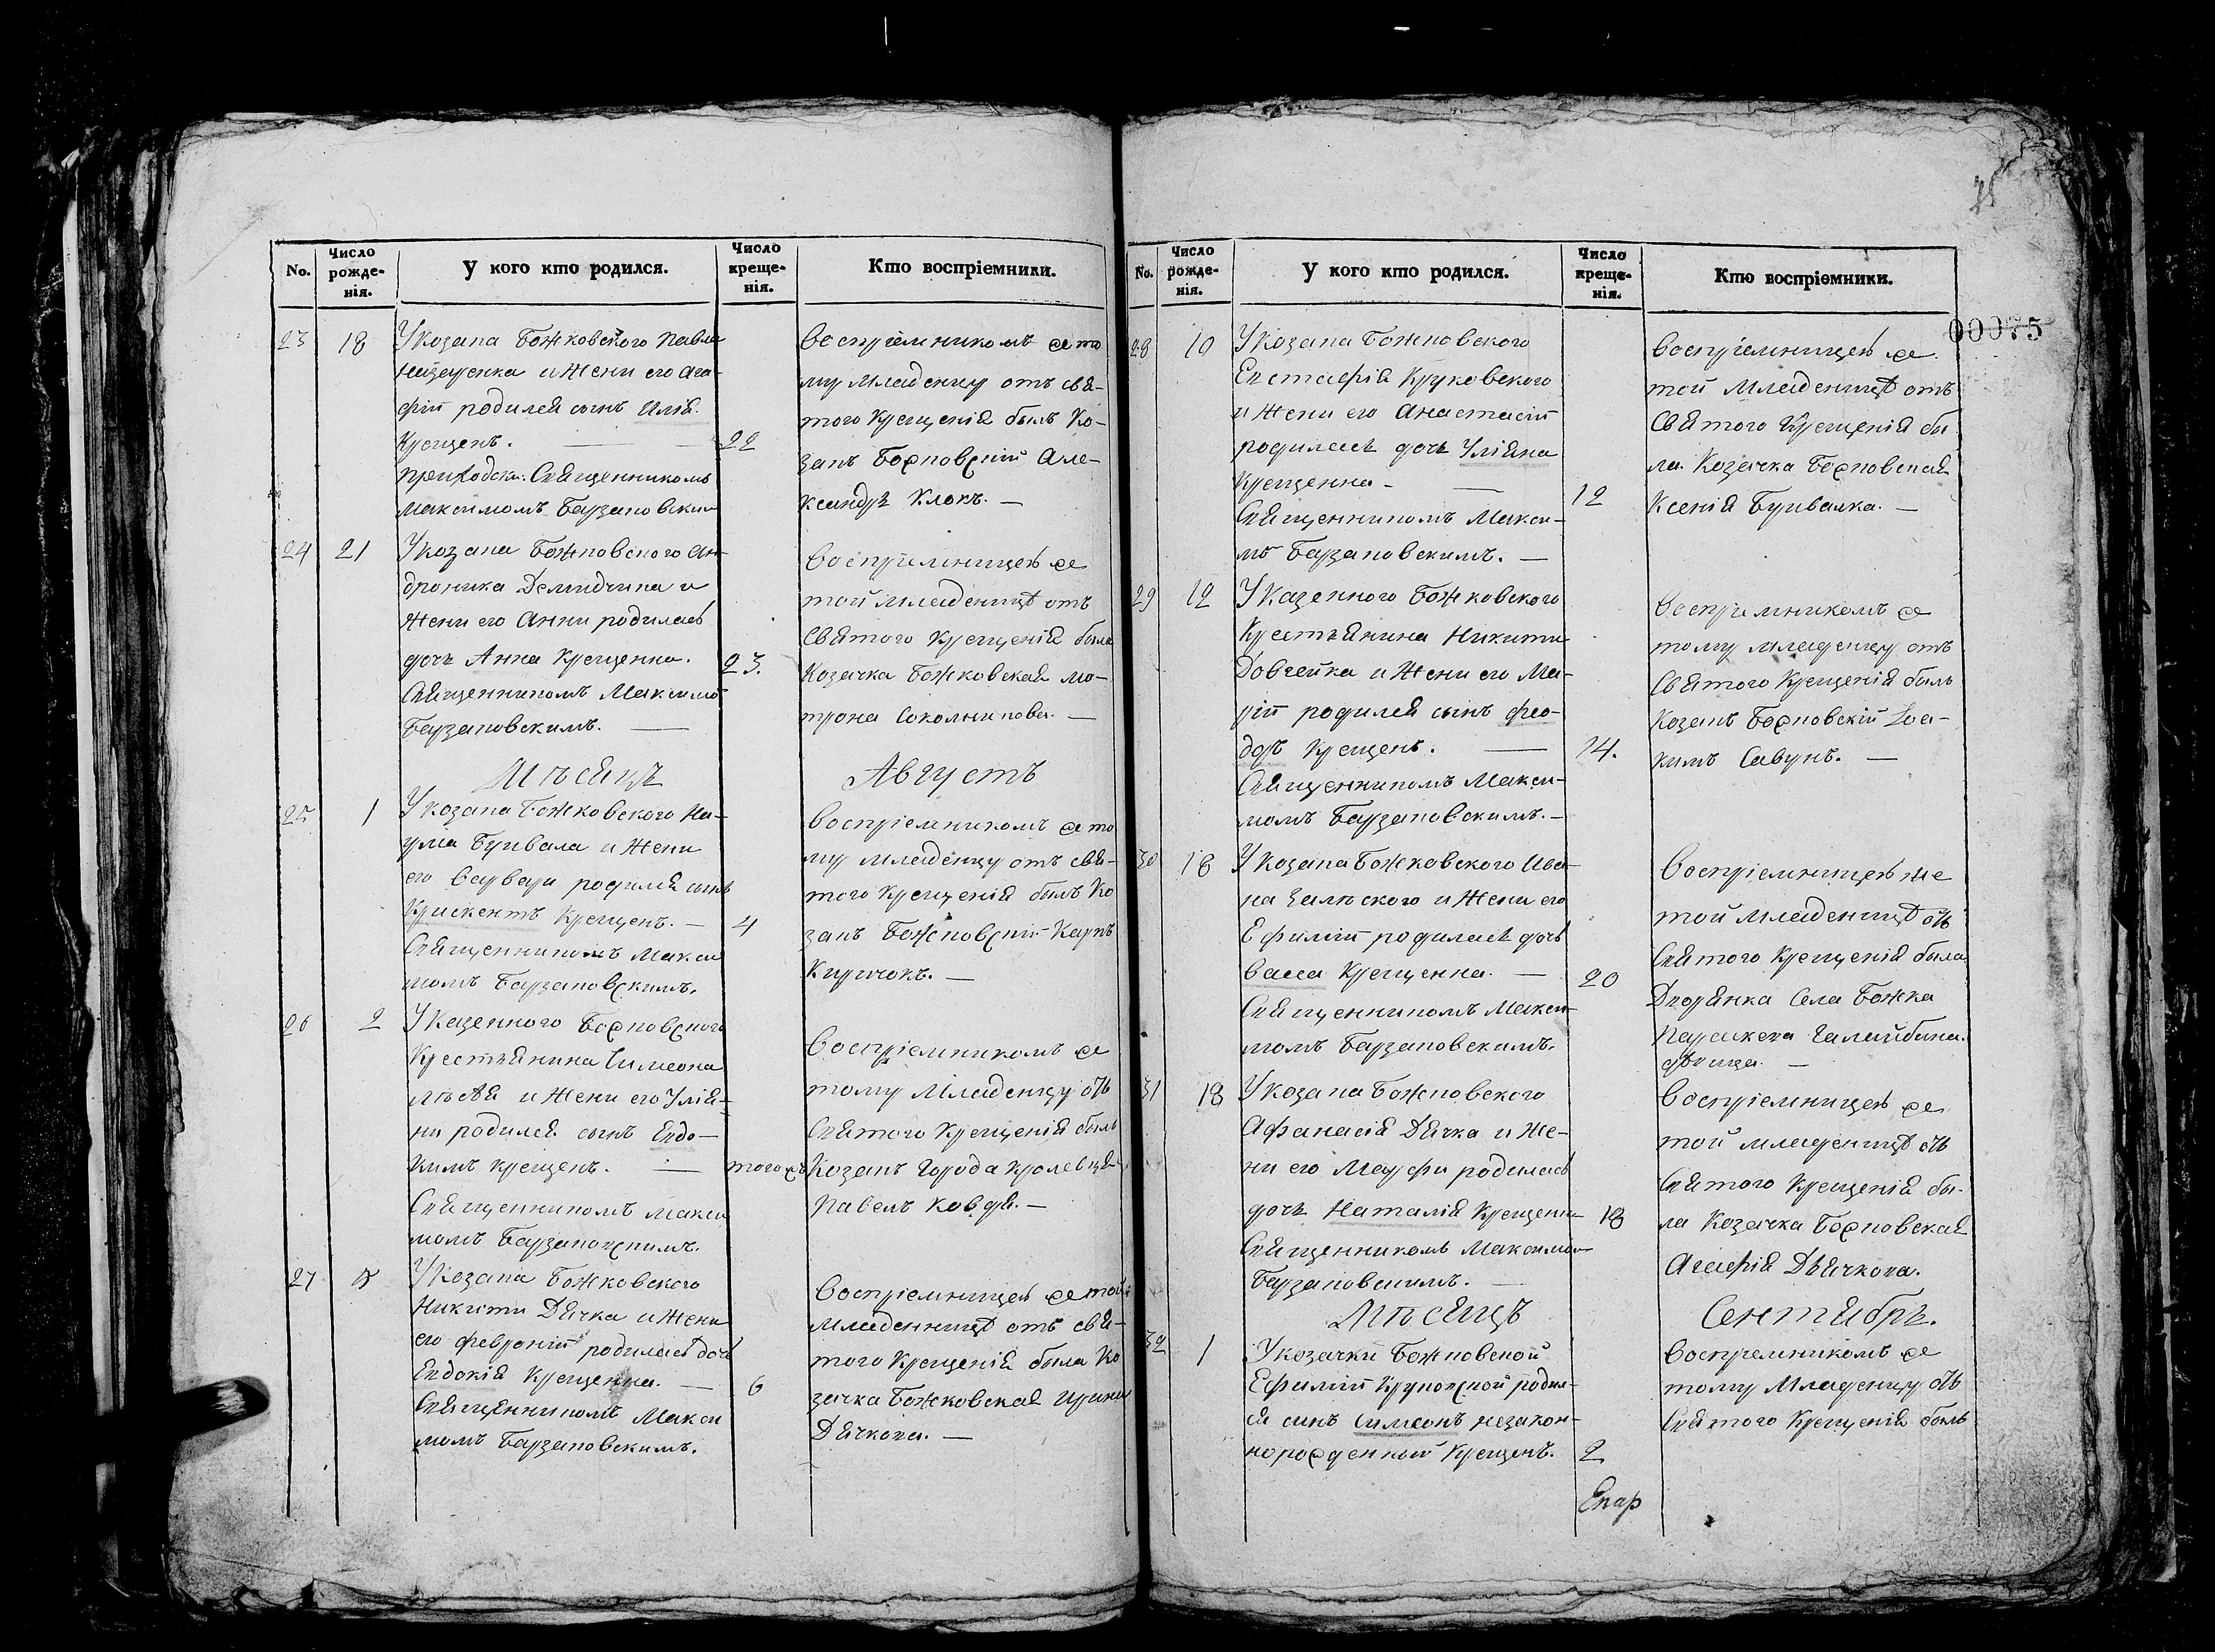 No.
Число рожде-нія.
У кого кто родился.
Число креще-нія.
Кто воспріемники.
23 18 У козака Божковского Павла
Назаренка и жени его Ага-
фіи родился сынъ Илія.
Крещенъ. — 22
Приходски. Священникомъ
Максимомъ Барзаковским
Воспріемникомъ же то
му младенцу отъ свя-
того Крещенія былъ Ко-
закъ Божковскій Але-
ксандръ Клокъ. —
24 21 У козака Божковского Ан-
дроника Демидчика и
жени его Анни родилась
дочь Анна Крещенна. 23.
Священникомъ Максимо
Барзаковскимъ. —
Воспріемницею же
той младеницѣ отъ
Святого Крещенія была
Козачка Божковская Мо-
трона Соколникова. —
Мѣсяцъ Августъ
25 1 У козака Божковского На-
ума Буивала и жени
его Варвари родился сынъ
Крискентъ Крещенъ. — 4
Священникомъ Макси
момъ Барзаковскимъ.
Воспріемникомъ же то
му младенцу отъ свя-
того Крещенія былъ Ко
закъ Божковскій Карпъ
Киричокъ. —
26 2 У Казенного Божковского
Крестьянина Симеона
и жени его Улія-
ни родился сынъ Евдо-
кимъ крещенъ. — того жъ
Священникомъ Макси
момъ Барзаковскимъ.
Воспріемникомъ же
тому младенцу отъ
Святого Крещенія былъ
Козакъ Города Кролевця
Павелъ Ковдя. —
27 5 У Козака Божковского
Никити Дячка и жени
его Февроніи родилась дочь
Евдокія Крещенна. — 6
Священникомъ Макси
момъ Барзаковскимъ.
Воспріемницею же той
младенницѣ отъ свя-
того Крещенія была Ко
зачка Божковская Ирина
Дячкова. —
00075
No.
Число рожде-нія.
У кого кто родился.
Число креще-нія.
Кто воспріемники.
28 10 У Козака Божковского
Евстафія Круковского
и жени его Анастасіи
родилась дочь Уліяна
Крещенна — 12
Священникомъ Макси-
мъ Барзаковскимъ. —
Воспріемницею же
той младеницѣ отъ
Святого Крещенія бы
ла Козачка Божковская
Ксенія Буивалка. —
29 12 У Казенного Божковского
Крестьянина Никити
Довгейка и жени его Ма-
ріи родился сынъ Фео-
доръ Крещенъ. — 14.
Священникомъ Макси-
момъ Барзаковскимъ. —
Воспріемникомъ же
тому младенцу отъ
Святого Крещенія былъ
Козакъ Божковскій Іоа-
кимъ Савунъ. —
30 18 У Козака Божковского Ива-
на и жени его
Ефиміи родилась дочь
Васса Крещенна. — 20
Священникомъ Макси-
момъ Барзаковскимъ.
Воспріемницею же
той младеницѣ отъ
Святого Крещенія была
Дворянка Села Божка
Параскева
дѣвица. —
31 18 У козака Божковского
Афанасія Дячка и же-
ни его Марфи родилась
дочь Наталія Крещенна 18
Священникомъ Максимом
Барзаковскимъ. —
Воспріемницею же
той младеницѣ отъ
Святого Крещенія бы-
ла Козачка Божковская
Агафія Дьячкова.
Мѣсяцъ Сентябрь.
32 1 У козачки Божковской
Ефиміи Круковской родил-
ся синъ Симеонъ незакон-
норожденный Крещенъ. 2
Воспріемникомъ же
тому младенцу отъ
Святого Крещенія былъ